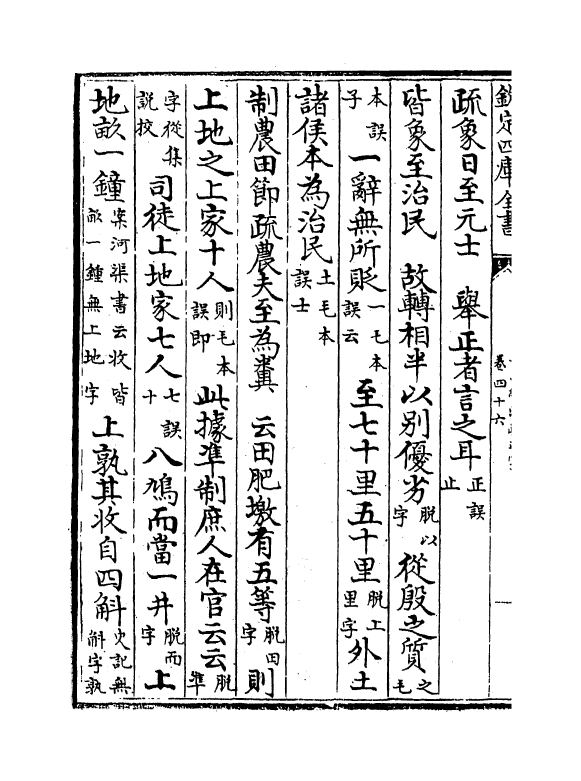 欽定四庫全書
卷四十六
疏象日至元士　舉正者言之耳正誤止
皆象至治民　故轉相半以别優劣脱以字　從殷之質之毛
本誤子　一辭無所貶一毛本誤云　至七十里五十里脱上里字　外土
諸侯本為治民土毛本誤士
制農田節疏農夫至為糞　云田肥墽有五等脱田字　則
上地之上家十人則毛本誤即　此據凖制庶人在官云云脱凖
字從集説挍　司徒上地家七人七誤十　八鳩而當一井脱而字　上
地畝一鍾案河渠書云收皆畝一鍾無上地字　上孰其收自四斛史記無斛字孰